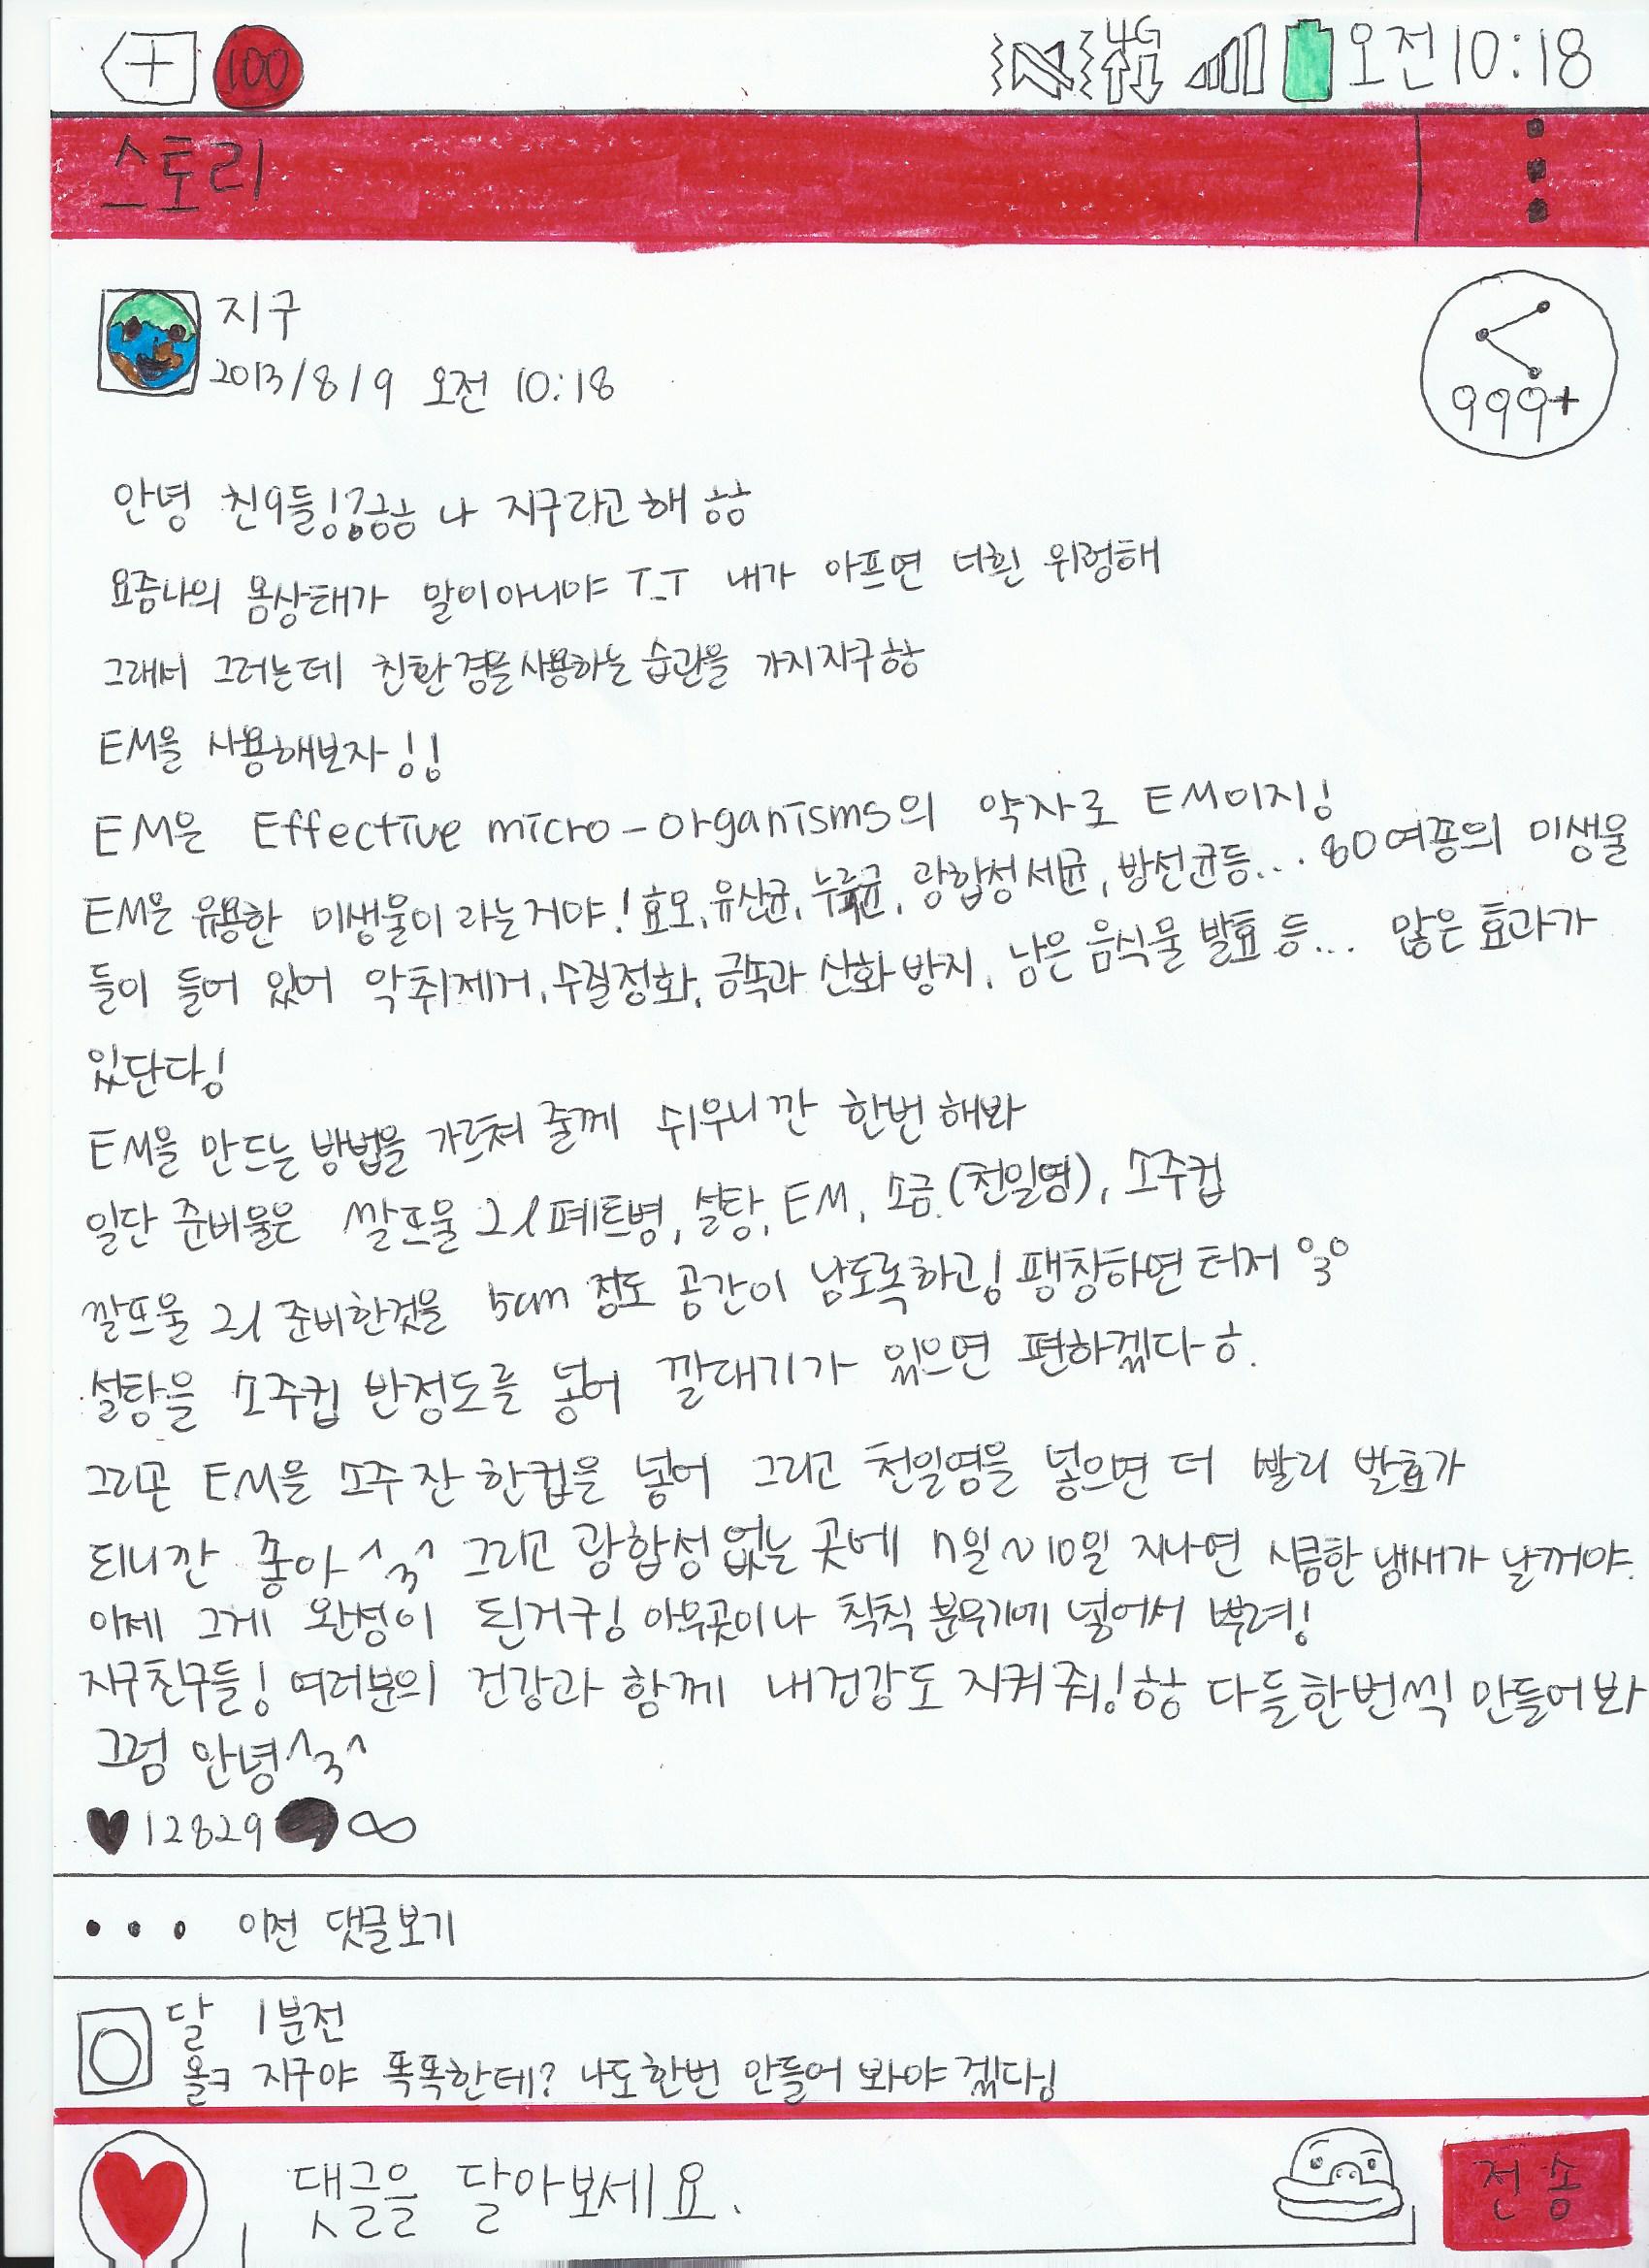 100 4G 오전 10:18
스토리
지구
2013/8/9 오전 10:18
999+
안녕 친9들!㉢ㅎㅎ 나 지구라고 해 ㅎㅎ
요즘나의 몸상태가 말이아니야 T_T 내가 아프면 너흰 위험해
그래서 그러는데 친환경을사용하는 습관을 가지자구ㅎㅎ
EM을 사용해보자!!
EM은 Effective micro-organisms의 약자로 EM이지!
EM은 유용한 미생물이 라는거야! 효모, 유산균, 누룩균, 광합성 세균, 방선균등... 80여종의 미생물
들이 들어 있어 악취제거, 수질정화, 금속과 산화 방지, 남은 음식물 발효 등... 많은 효과가
있단다!
EM을 만드는 방법을 가르쳐 줄께 쉬우니깐 한번 해봐
일단 준비물은 쌀뜨물 2l페트병, 설탕, EM, 소금(천일염), 소주컵
쌀뜨물 2l 준비한것을 5cm 정도 공간이 남도록하고! 팽창하면 터저 °3°
설탕을 소주컵 반정도를 넣어 깔대기가 있으면 편하겠다ㅎ.
그리곤 EM을 소주 잔 한컵을 넣어 그리고 천일염을 넣으면 더 빨리 발효가
되니깐 좋아 ^3^ 그리고 광합성 없는 곳에 7일~10일 지나면 시큼한 냄새가 날꺼야.
이제 그게 완성이 된거구! 아무곳이나 칙칙 분무기에 넣어서 뿌려!
지구친구들! 여러분의 건강과 함께 내건강도 지켜줘!ㅎㅎ 다들한번씩 만들어봐
그럼 안녕^3^
♥12829 ∞
••• 이전 댓글보기
달 1분전
올ㅋ 지구야 똑똑한데? 나도한번 만들어 봐야 겠다!
댓글을 달아보세요.
전송